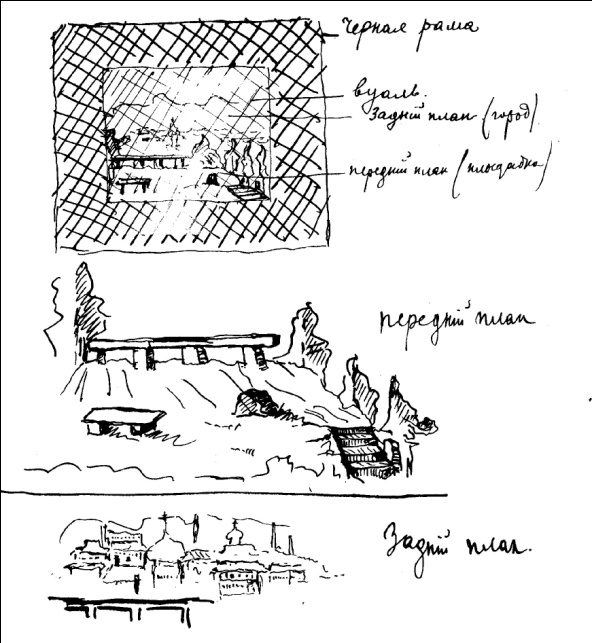 Черная рама
вуаль.
Задній план (город)
передній план (площадка)
передній план
Задній план.